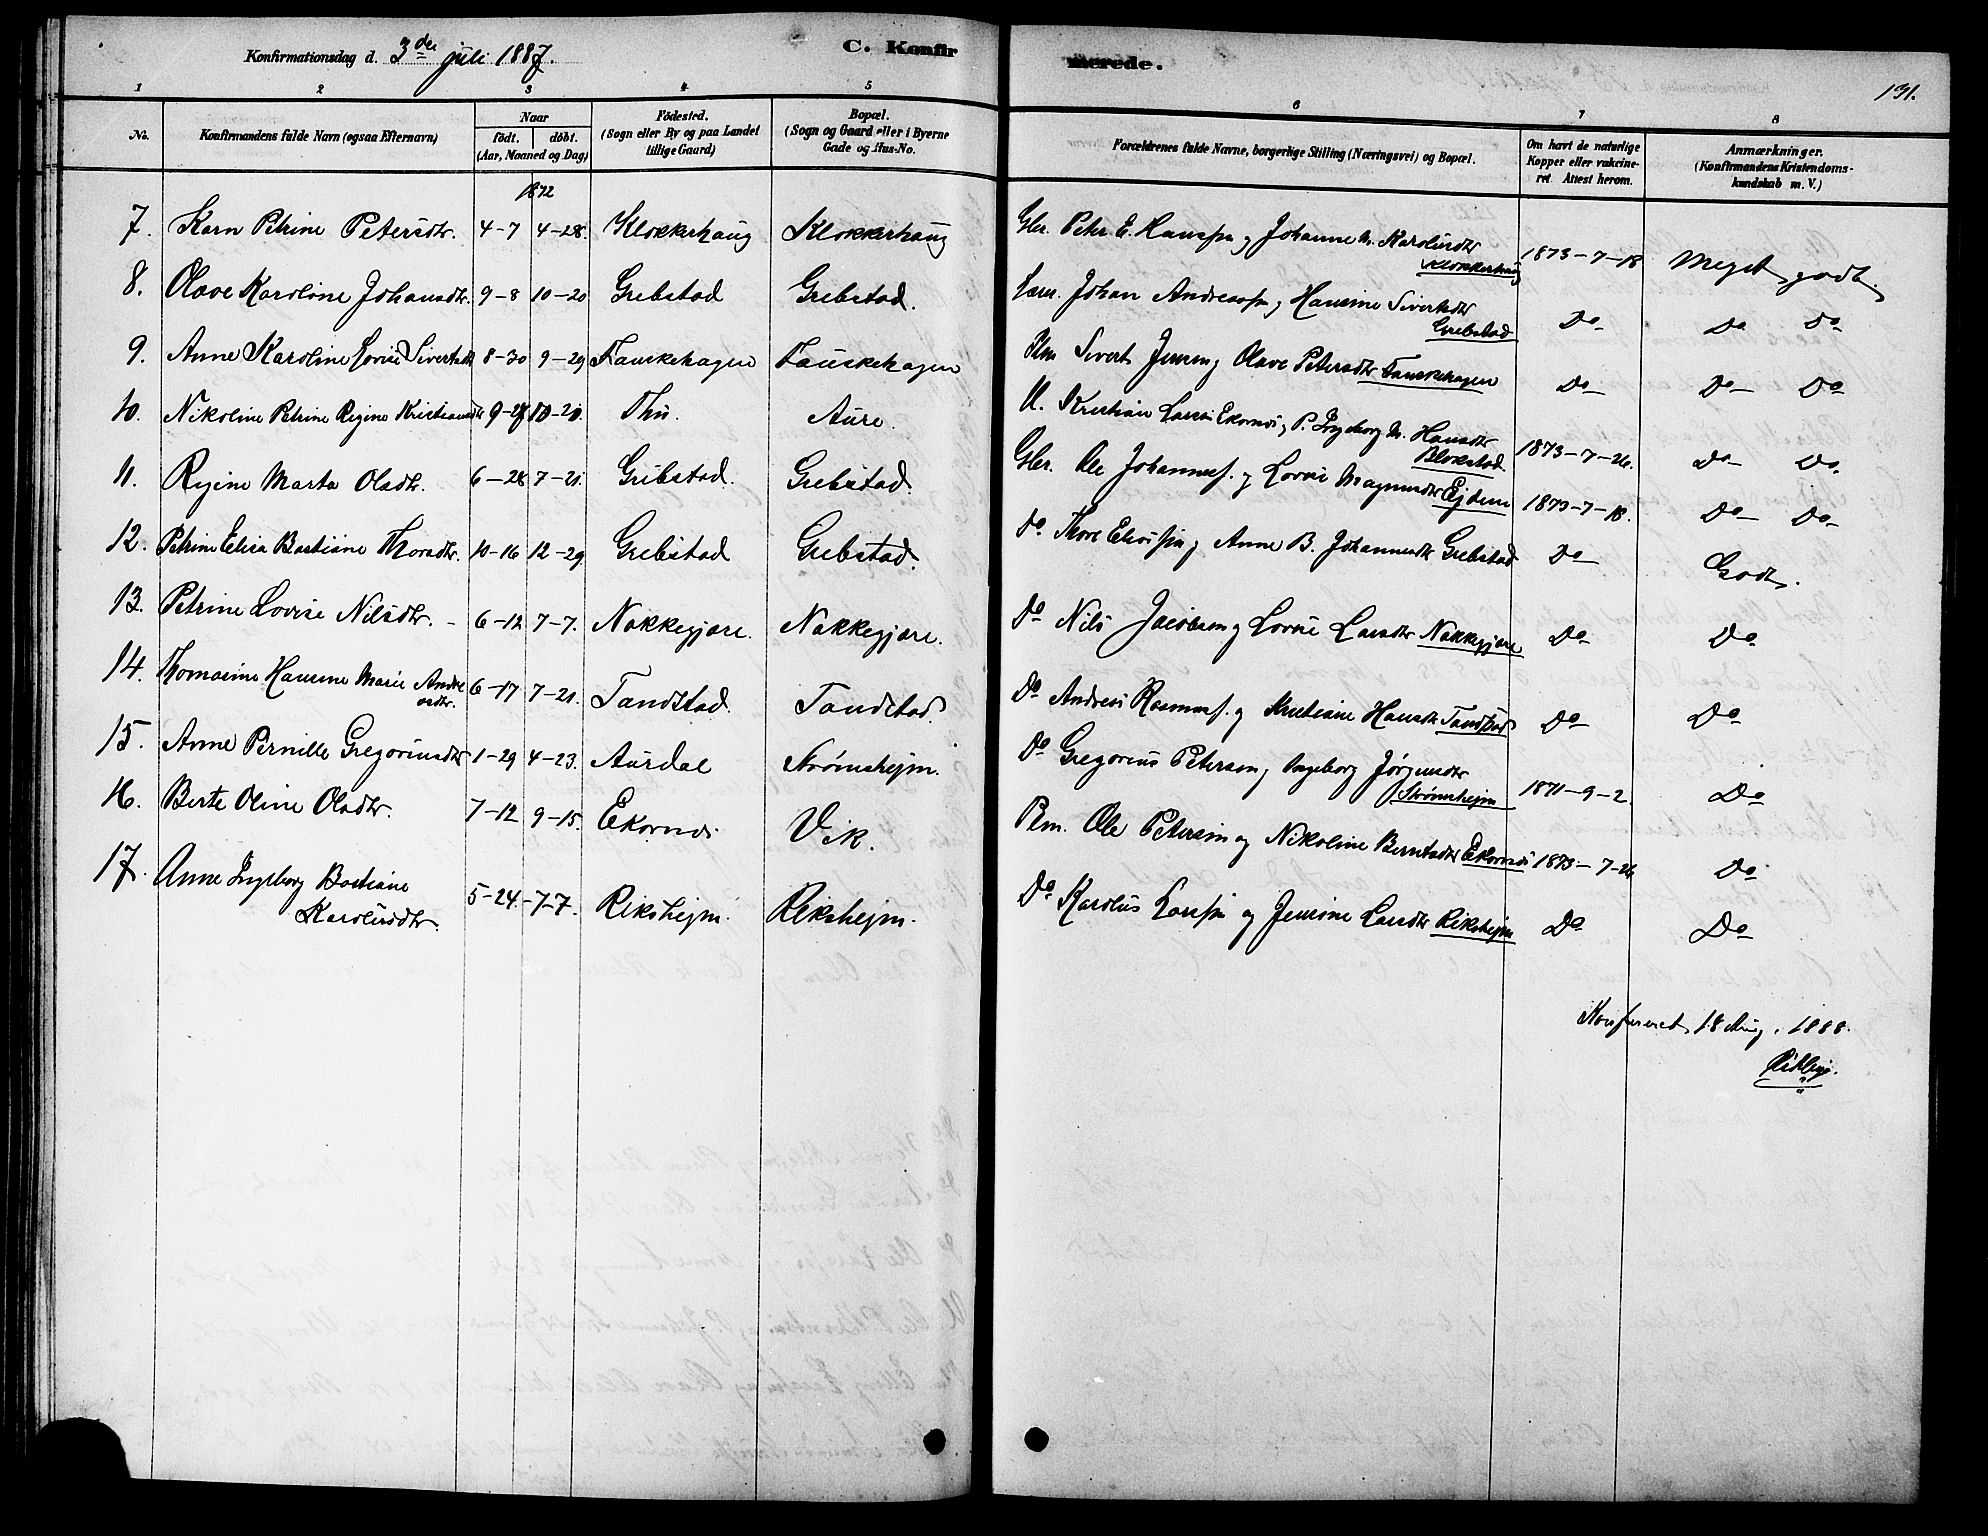 Konfirmationsdag d. 3die juli 1887.
C. Konfirmerede.
131.
1 2 3 4 5 6 7 8
No.
Konfirmandens fulde Navn (ogsaa Efternavn)
Naar
födt. döbt.
(Aar, Maaned og Dag)
Födested.
(Sogn eller By og paa Landet
tillige Gaard)
Bopæl.
(Sogn og Gaard eller i Byerne
Gade og Hus-No.
Forældrenes fulde Navne, borgerlige Stilling (Næringsvei) og Bopæl.
Om havt de naturlige
Kopper eller vakcine-
ret. Attest herom.
Anmærkninger.
(Konfirmandens Kristendoms-
kundskab m. V.)
1872
7. Karn Petrine Petersdtr. 4-7 4-28. Klokkerhaug Klokkerhaug Gbr. Peter E. Hanssen og Johanne M. Karolusdtr 1873-7-18 Meget godt.
Klokkerhaug
8. Olave Karoline Johansdtr. 9-8 10-20 Grebstad Grebstad. Johan Andreassen og Hansine Sivertsdtr Do Do Do
Grebstad
9. Anne Karoline Lovise Sivertsdtr 8-30 9-29 Fauskehagen Fauskehagen Plm Sivert Jensen og Olave Petersdtr Fauskehagen Do Do Do
10. Nikoline Petrine Regine Kristiansdtr 9-28 10-20. Thu. Aure. U. Kristian Larsen Ekornes, P. Ingeborg M. Hansdtr 1873-7-26. Do Do
Blokstad
11. Regine Marta Olsdtr. 6-28 7-21. Grebstad. Grebstad. Gbr. Ole Johanness. og Lovise Magnusdtr Ejdem 1873-7-18. Do Do
12. Petrine Elisa Bastiane Thorsdtr. 10-16 12-29. Grebstad Grebstad. Do Thore Eliassen og Anne B. Johannesdtr Grebstad Do Godt.
13. Petrine Lovise Nilsdtr. 6-12 7-7. Nakkegjære. Nakkegjære. Do Nils Jacobsen og Lovise Larsdtr Nakkegjære Do Do
14. Thomasine Hansine Marie Andre 6-17 7-21. Tandstad. Tandstad. Do Andreas Rasmuss. og Kristiane Hansdtr Tandstad Do Do
asdtr.
15. Anne Pernille Gregoriusdtr 1-29 4-23. Aurdal Strømshejm. Do Gregorius Petersen og Ingeborg Jørgensdtr 1871-9-2. Do
Strømshejm
16. Berte Oline Olsdtr. 7-12 9-15. Ekornes Vik. Plm. Ole Petersen og Nikoline Berntsdtr Ekornes 1873-7-26 Do
17. Anne Ingeborg Bastiane 5-24. 7-7. Rikshejm. Rikshejm. Do Karolus Larssen og Jensine Larsdtr Rikshejm Do Do
Karolusdtr.
Konfereret, 18 Aug. 1888.